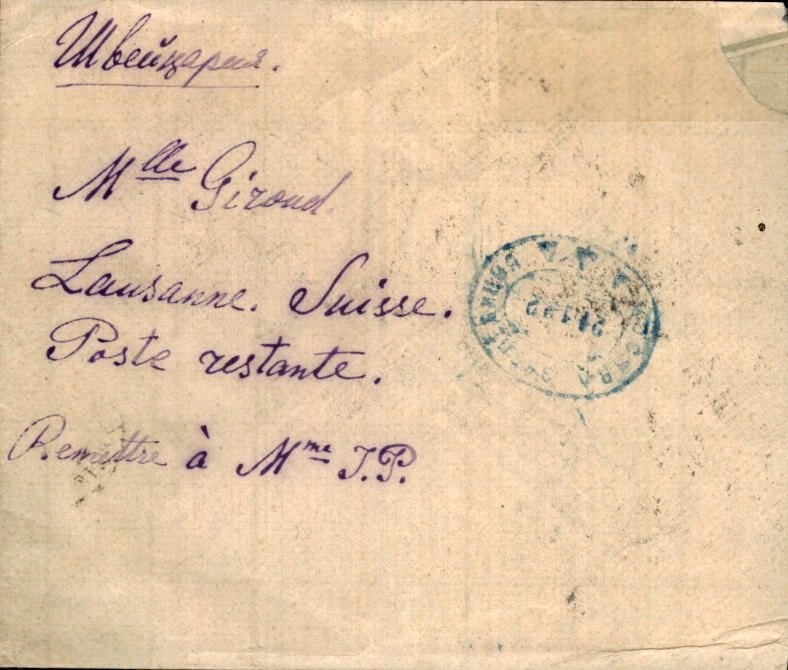 Швейцария.
Mlle Giroud.
Lausanne. Suisse.
Poste restante.
Remettre à Mme J.P.